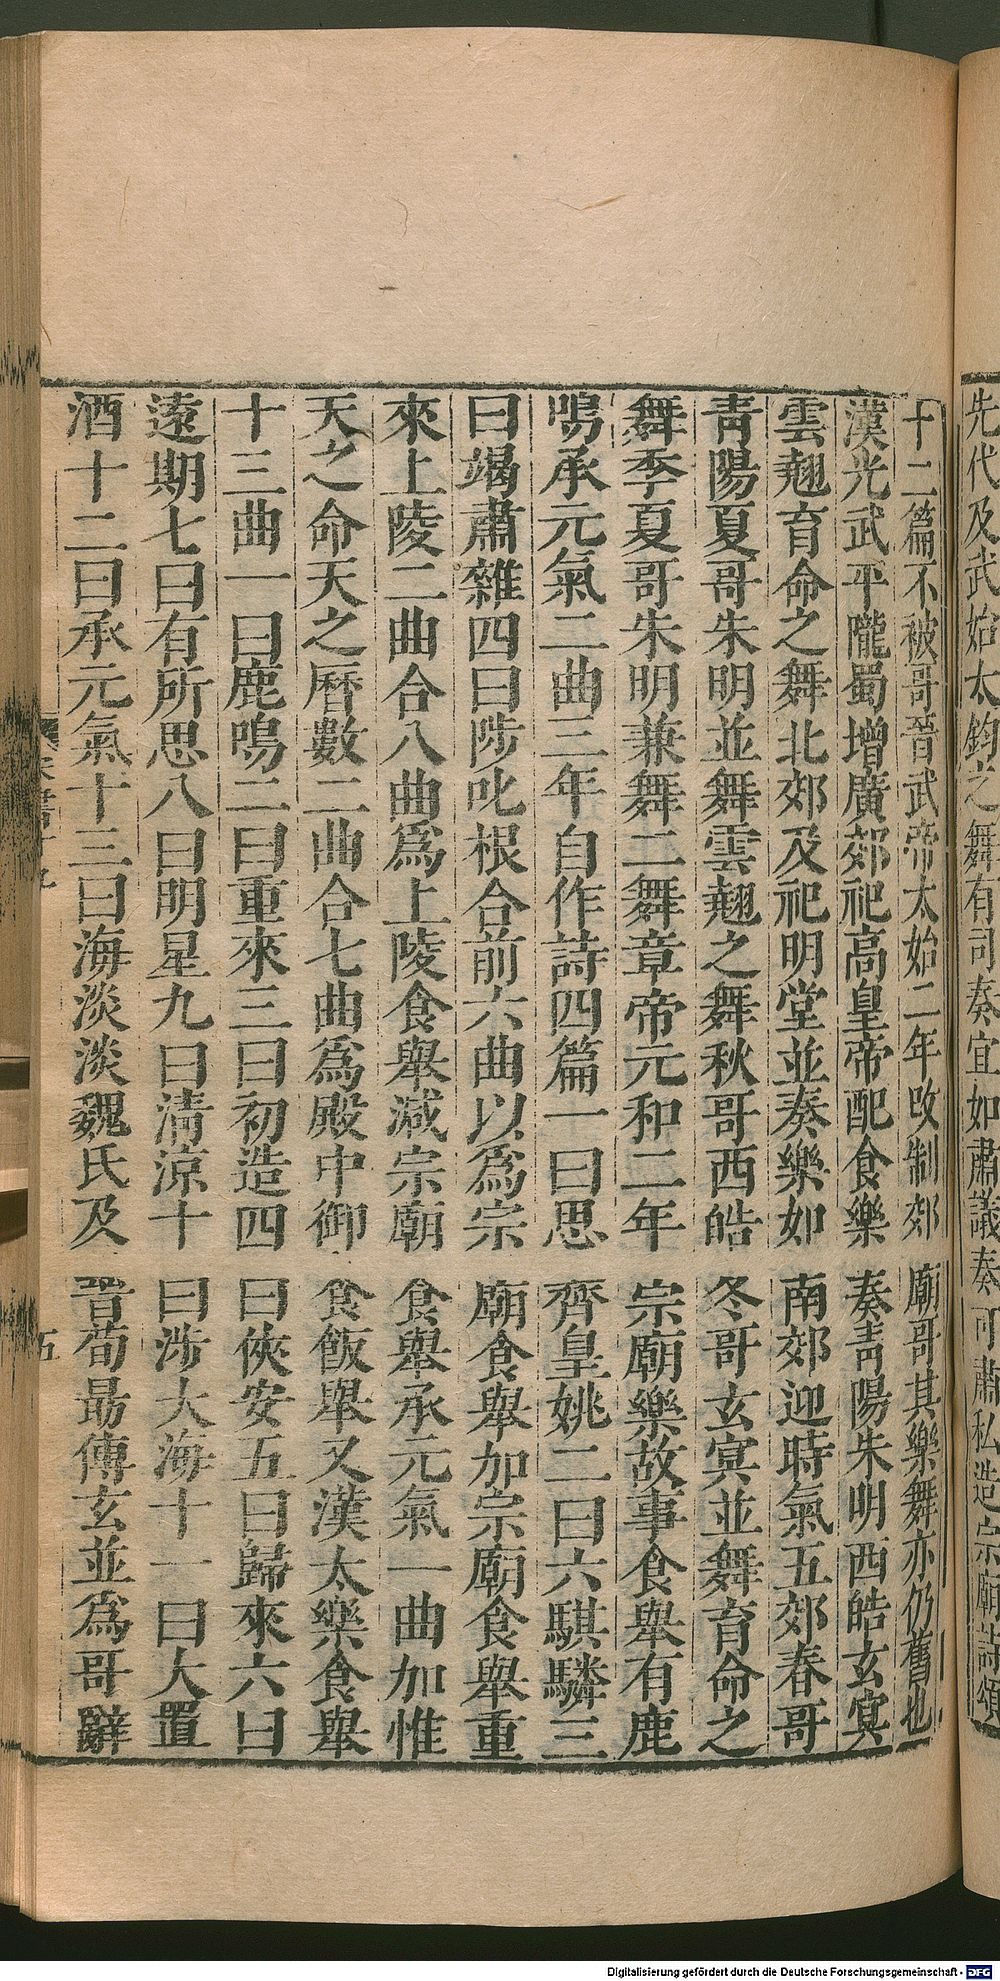 先代及武始太鈞之舞有司奏宜如肅議奏可肅私造宗廟詩頌
十二篇不被哥晉武帝太始二年改制郊廟哥其樂舞亦仍舊也
漢光武平隴蜀增廣郊祀高皇帝配食樂奏靑陽朱明西皓玄冥
雲翹育命之舞北郊及祀明堂並奏樂如南郊迎時氣五郊春哥
靑陽夏哥朱明並舞雲翹之舞秋哥西皓冬哥玄冥並舞育命之
舞季夏哥朱明兼舞二舞章帝元和二年宗廟樂故事食舉有鹿
鳴承元氣二曲三年自作詩四篇一曰思齊皇姚二曰六騏驎三
曰竭肅雝四曰陟叱根合前六曲以爲宗廟食舉加宗廟食舉重
來上陵二曲合八曲爲上陵食舉減宗廟食舉承元氣一曲加惟
天之命天之曆數二曲合七曲爲殿中御食飯舉又漢太樂食舉
十三曲一曰鹿鳴二曰重來三曰初造四曰俠安五曰歸來六曰
遠期七曰有所思八曰明星九曰清涼十曰涉大海十一曰大置
酒十二曰承元氣十三曰海淡淡魏氏及晉荀勗傳玄並爲哥辭
五
Digitalisierung gefördert durch die Deutsche Forschungsgemeinschaft - DFG